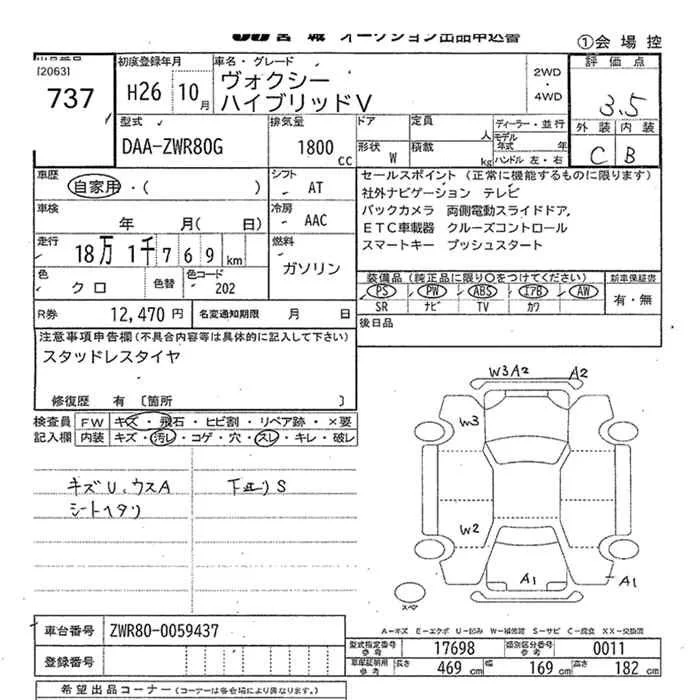 JU 宮 城 オークション出品申込書
①会 場 控
出品番号
[2063]
737
初度登録年月
H26 10月
車名・グレード
ヴォクシー
ハイブリッドV
2WD
・
4WD
評 価 点
3.5
外 装 内 装
C B
型式
DAA-ZWR80G
排気量
1800 cc
ドア
形状 W
定員 人
積載 kg
ディーラー・並行
モデル年式 年
ハンドル 左・右
車歴
自家用・( )
シフト
AT
車検
年 月( 日)
冷房
AAC
走行
18万 1千 7 6 9 km
燃料
ガソリン
色
クロ
色替
色コード
202
R券 12,470 円
名変通知期限 月 日
セールスポイント (正常に機能するものに限ります)
社外ナビゲーション テレビ
バックカメラ 両側電動スライドドア,
ETC車載器 クルーズコントロール
スマートキー プッシュスタート
装備品 (純正品に限り○をつけてください)
新車保証書
PS PW ABS エアB AW
SR ナビ TV カワ
有・無
後日品
注意事項申告欄 (不具合内容等は具体的に記入して下さい)
スタッドレスタイヤ
修復歴 有 〔箇所 〕
検査員
記入欄
FW キズ・飛石・ヒビ割・リペア跡・×要
内装 キズ・汚レ・コゲ・穴・スレ・キレ・破レ
キズU、ウスA
シートヘタリ
下廻りS
W3 A2 A2
W3
W2
A1
A1
スペア
A-キズ E-エクボ U-凹み W-補修跡 S-サビ C-腐食 XX-交換済
車台番号 ZWR80-0059437
登録番号
型式指定番号
参考
17698
類別区分番号
参考
0011
車庫証明用
参考
長さ 469 cm
幅 169 cm
高さ 182 cm
希望出品コーナー (コーナーは各会場により異なります。)